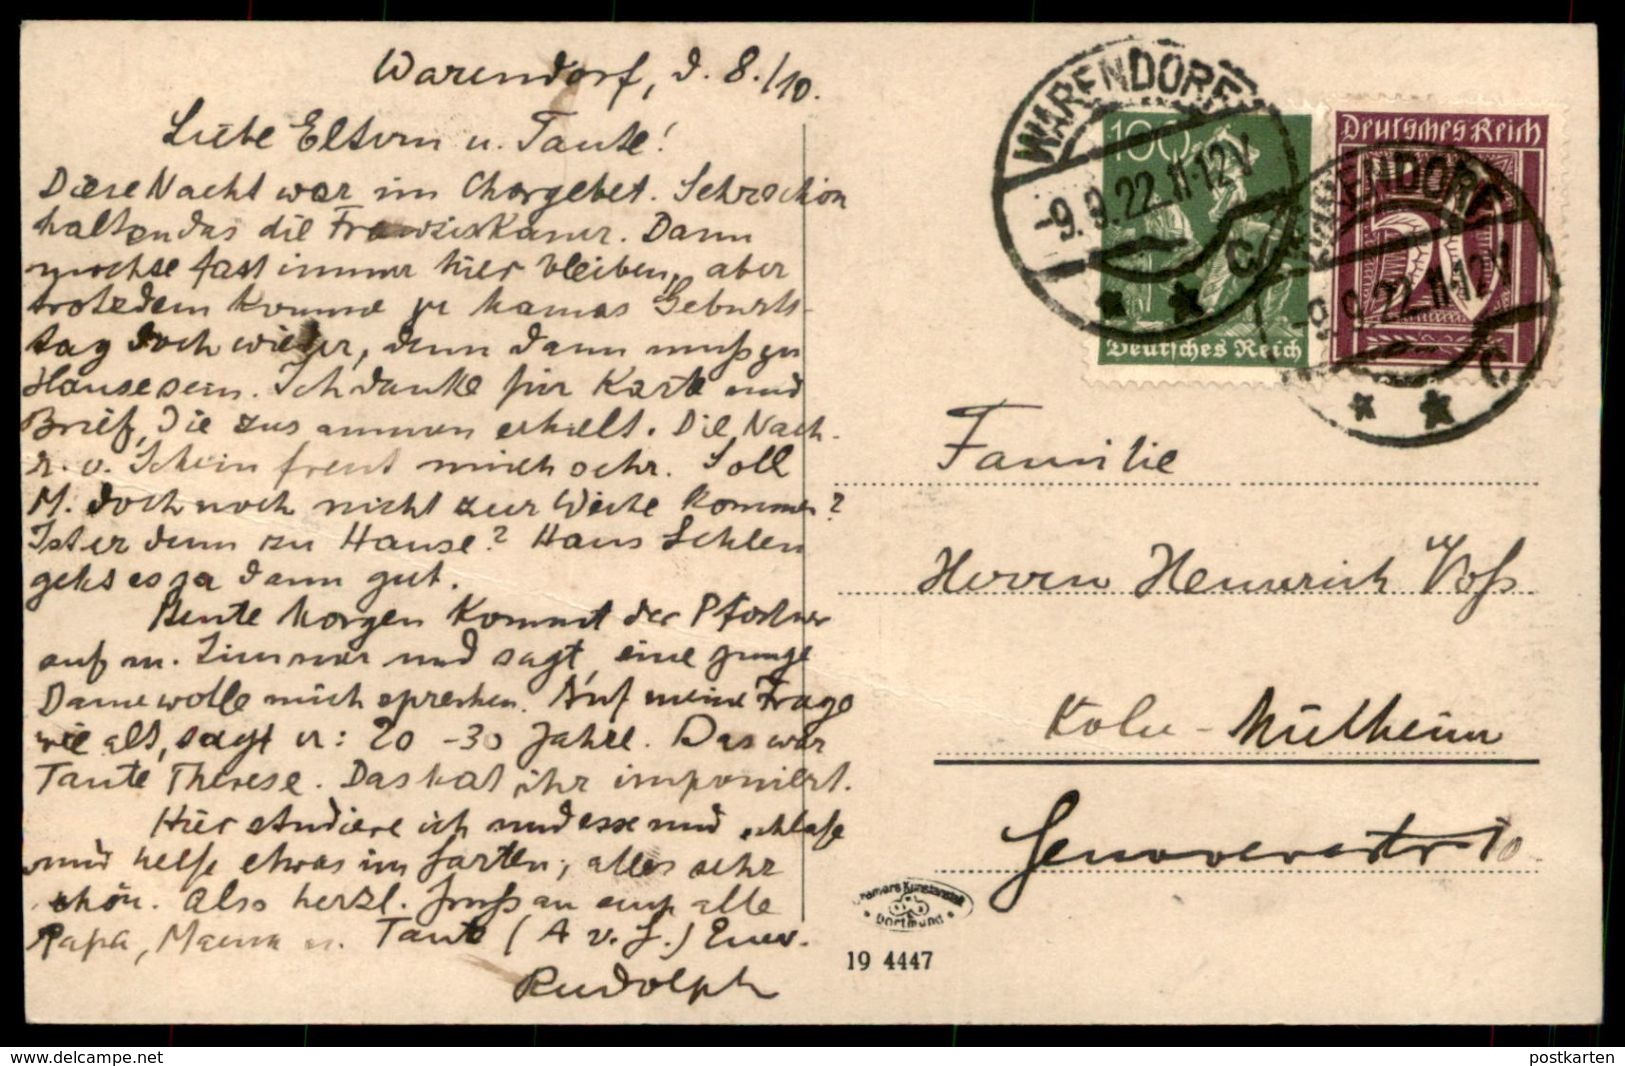 Warendorf, d. 8./10.
Liebe Eltern u. Tante!
Diese Nacht war im Chorgebet. Sehr schön
halten das die Franziskaner. Dann
mochte fast immer hier bleiben, aber
trotzdem komme zu Mamas Geburts-
tag doch wieder, denn dann muß zu
Hause sein. Ich danke für Karte und
Brief, die zusammen erhielt. Die Nach-
r. v. Schein freut mich sehr. Soll
M. doch noch nicht zur Weihe kommen?
Ist er denn zu Hause? Hans Sehlen
geht es ja dann gut.
Heute Morgen kommt der Pförtner
auf m. Zimmer und sagt, eine junge
Dame wolle mich sprechen. Auf meine Frage
wie alt, sagt er: 20-30 Jahre. Das war
Tante Therese. Das hat ihr imponiert.
Hier studiere ich und esse und schlafe
und helfe etwas im Garten, alles sehr
schön. Also herzl. Gruß an euch alle
Papa, Mama u. Tante (A v. J.) Euer.
Rudolph
WARENDORF
-9.9.22.11-12V
C
100
Deutsches Reich
WARENDORF
-9.9.22.11-12V
C
Deutsches Reich
Familie
Herrn Heinrich Voß
Köln-Mülheim
Genovevastr 10
Cramers Kunstanstalt
Dortmund
19 4447
www.delcampe.net
postkarten